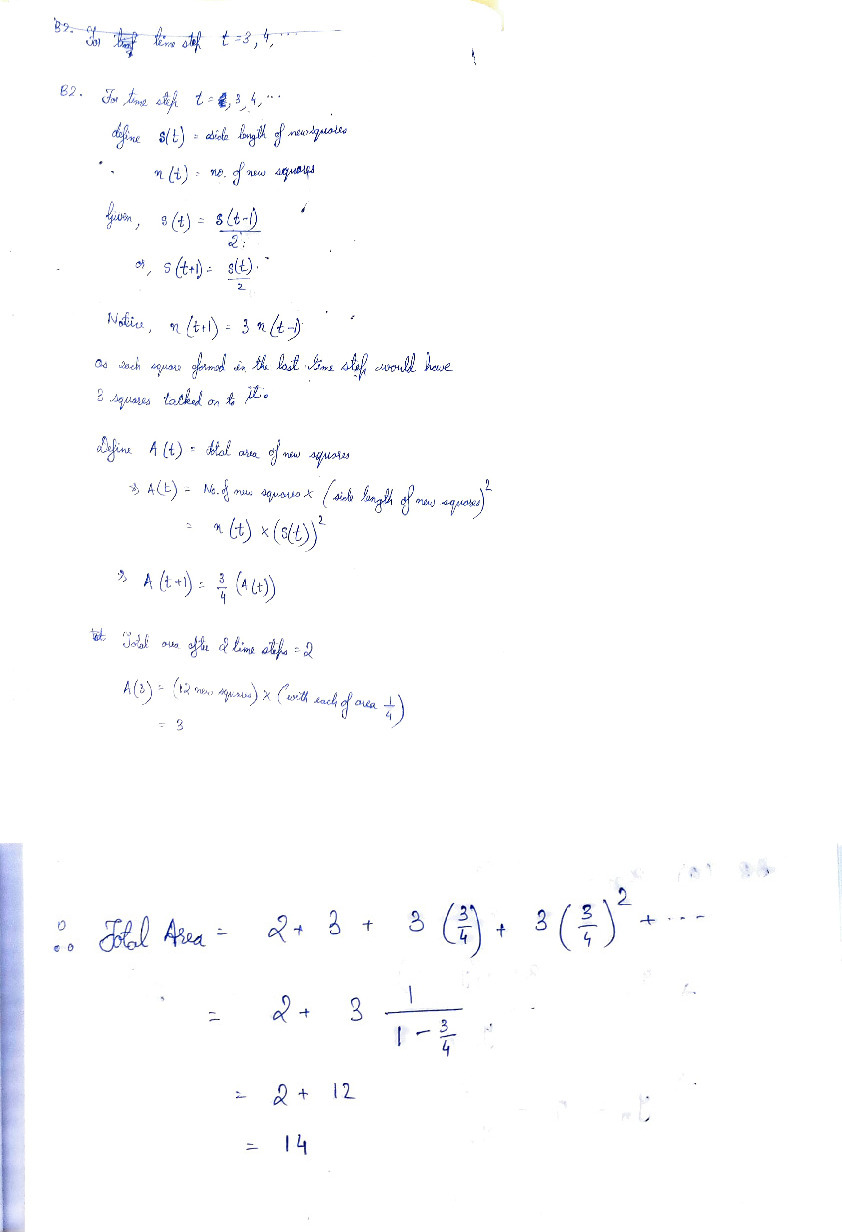 B2. For time step t = 3, 4, ...
B2. For time step t = 2, 3, 4, ...
define s(t) = side length of new squares
n(t) = no. of new squares
Given, s(t) = s(t-1)/2
or, s(t+1) = s(t)/2
Notice, n(t+1) = 3 n(t-1)
as each square formed in the last time step would have
3 squares tacked on to it.
Define A(t) = total area of new squares
⇒ A(t) = No. of new squares × (side length of new squares)²
= n(t) × (s(t))²
⇒ A(t+1) = 3/4 (A(t))
Total area after 2 time steps = 2
A(3) = (12 new squares) × (with each of area 1/4)
= 3
∴ Total Area = 2 + 3 + 3 (3/4) + 3 (3/4)² + ...
= 2 + 3 1/(1 - 3/4)
= 2 + 12
= 14